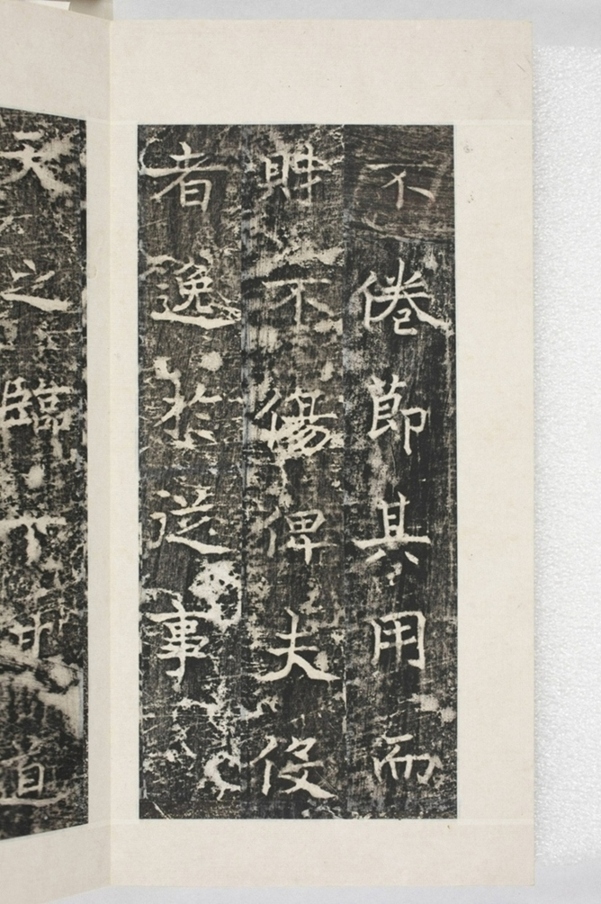 不倦節其用而
財不傷俾夫役
者逸於從事
天之臨下
道